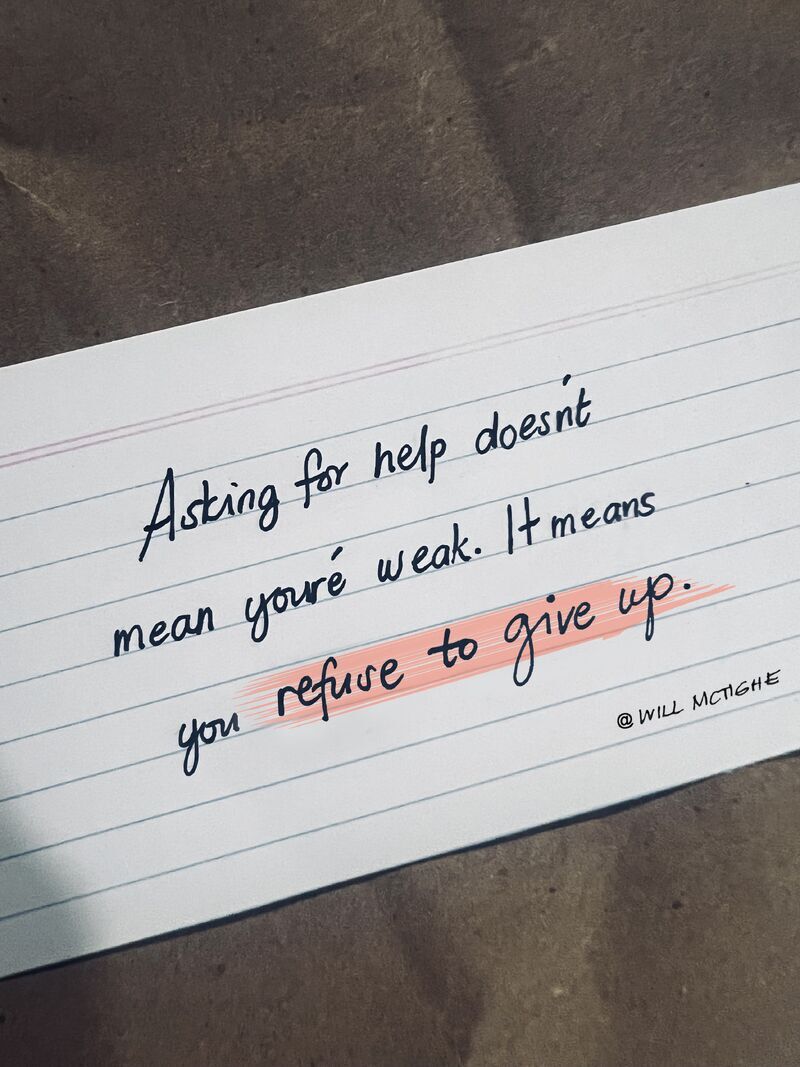 Asking for help doesn't
mean you're weak. It means
you refuse to give up.
@WILL MCTIGHE